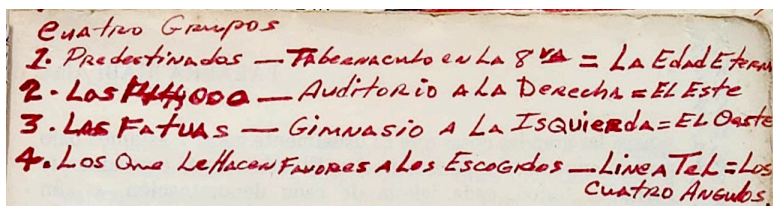 Cuatro Grupos
1. Predestinados — Tabernaculo en La 8va = La Edad Eterna
2. Los 144000 — Auditorio a La Derecha = El Este
3. Las Fatuas — Gimnasio a La Isquierda = El Oeste
4. Los Que Le Hacen Favores a Los Escogidos — Linea Tel = Los
Cuatro Angulos